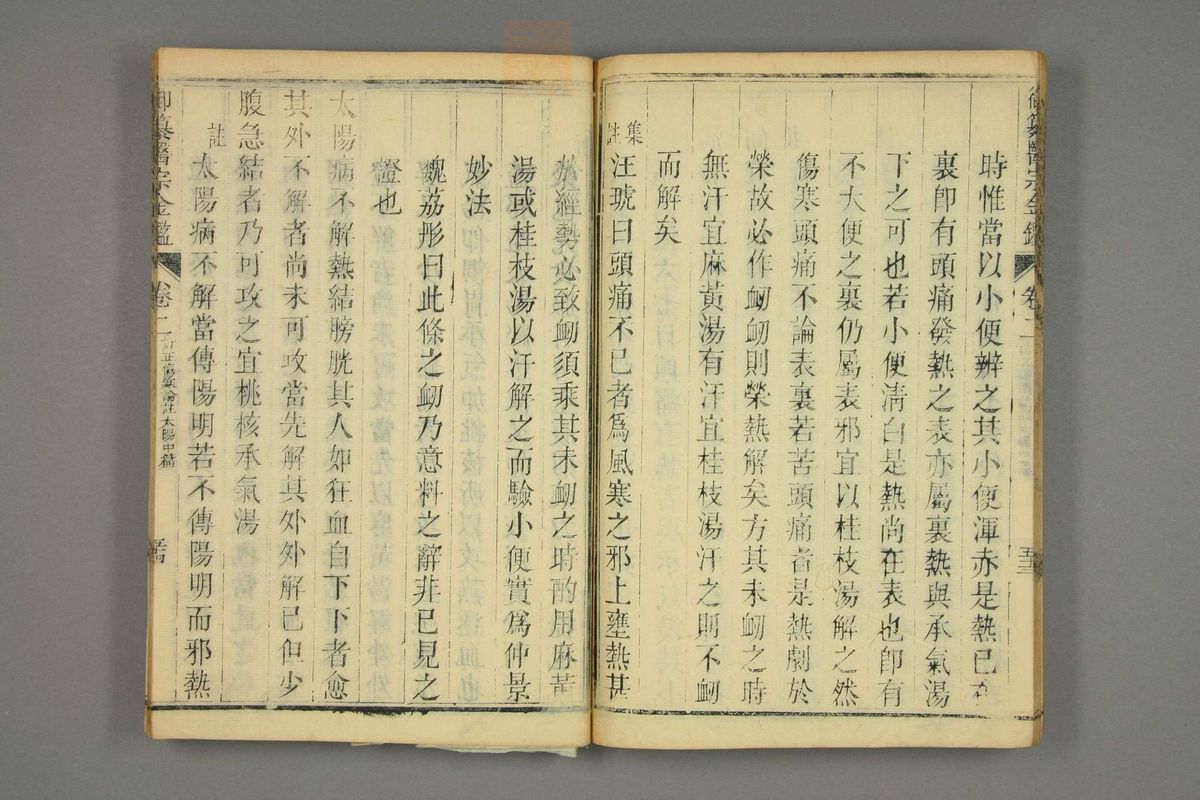 御纂醫宗金鑑 卷二 五三
時惟當以小便辨之其小便渾赤是熱已在
裏卽有頭痛發熱之表亦屬裏熱與承氣湯
下之可也若小便清白是熱尚在表也卽有
不大便之裏仍屬表邪宜以桂枝湯解之然
傷寒頭痛不論表裏若苦頭痛者是熱劇於
榮故必作衄衄則榮熱解矣方其未衄之時
無汗宜麻黃湯有汗宜桂枝湯汗之則不衄
而解矣
集註汪琥曰頭痛不已者爲風寒之邪上壅熱甚
於經勢必致衄須乘其未衄之時酌用麻黃
湯或桂枝湯以汗解之而驗小便實爲仲景
妙法
魏荔彤曰此條之衄乃意料之辭非已見之
證也
太陽病不解熱結膀胱其人如狂血自下下者愈
其外不解者尚未可攻當先解其外外解已但少
腹急結者乃可攻之宜桃核承氣湯
註太陽病不解當傳陽明若不傳陽明而邪熱
御纂醫宗金鑑 卷二 訂正傷寒論註太陽中篇 五四